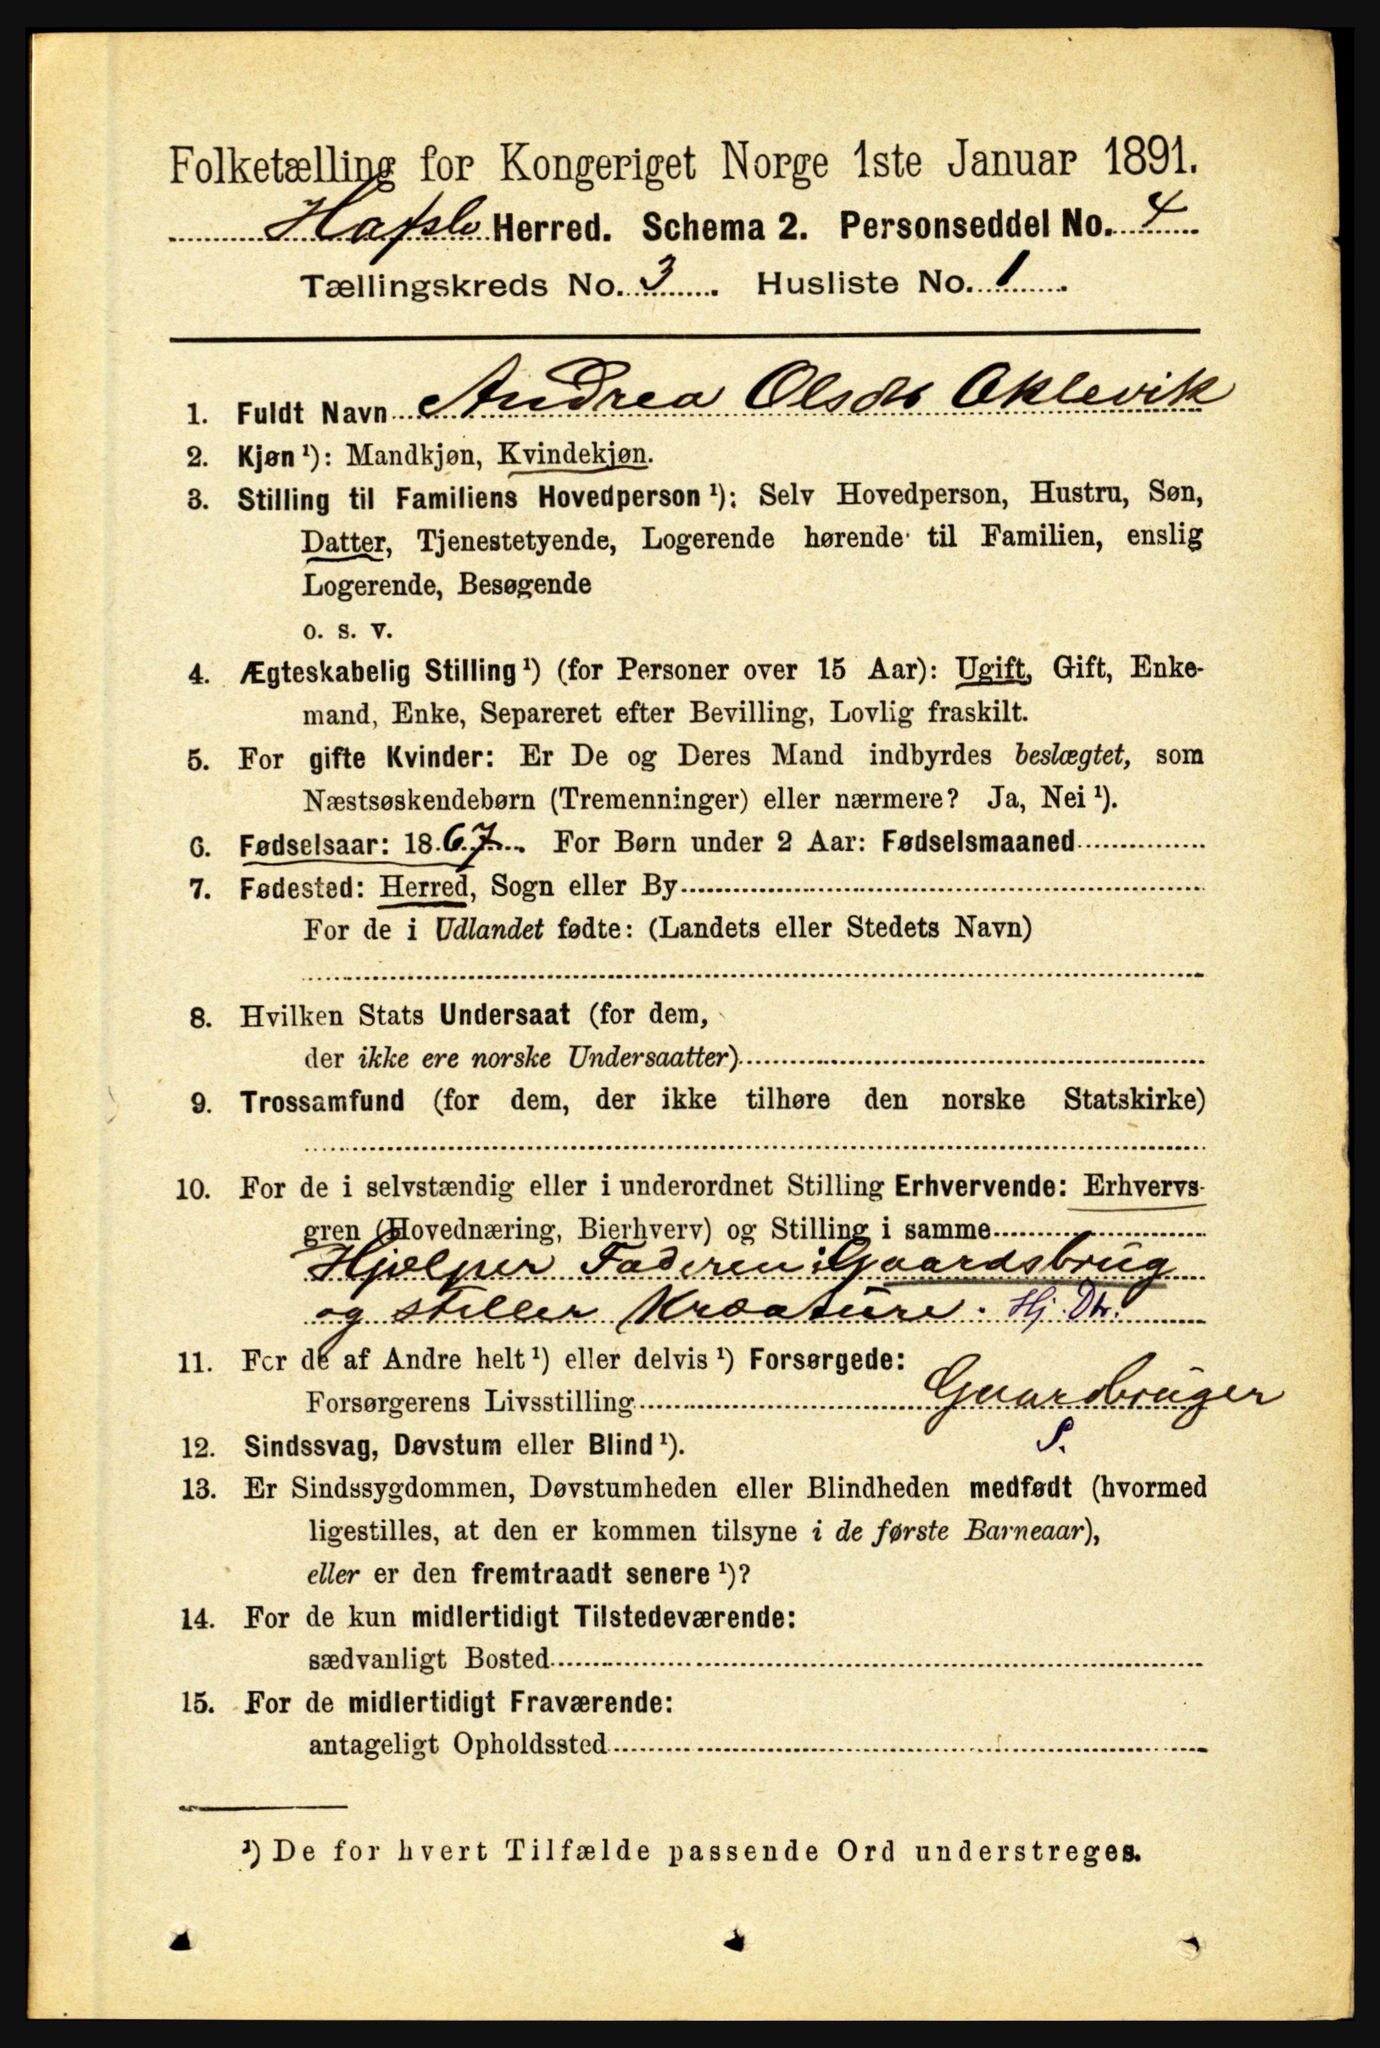 Folketælling for Kongeriget Norge 1ste Januar 1891.
Hafslo Herred. Schema 2. Personseddel No. 4
Tællingskreds No. 3. Husliste No. 1.
1. Fuldt Navn Andrea Olsdtr Oklevik
2. Kjøn ¹): Mandkjøn, Kvindekjøn.
3. Stilling til Familiens Hovedperson ¹): Selv Hovedperson, Hustru, Søn,
Datter, Tjenestetyende, Logerende hørende til Familien, enslig
Logerende, Besøgende
o. s. v.
4. Ægteskabelig Stilling ¹) (for Personer over 15 Aar): Ugift, Gift, Enke-
mand, Enke, Separeret efter Bevilling, Lovlig fraskilt.
5. For gifte Kvinder: Er De og Deres Mand indbyrdes beslægtet, som
Næstsøskendebørn (Tremenninger) eller nærmere? Ja, Nei ¹).
6. Fødselsaar: 1867. For Børn under 2 Aar: Fødselsmaaned
7. Fødested: Herred, Sogn eller By
For de i Udlandet fødte: (Landets eller Stedets Navn)
8. Hvilken Stats Undersaat (for dem,
der ikke ere norske Undersaatter)
9. Trossamfund (for dem, der ikke tilhøre den norske Statskirke)
10. For de i selvstændig eller i underordnet Stilling Erhvervende: Erhvervs-
gren (Hovednæring, Bierhverv) og Stilling i samme
Hjælper Faderen i Gaardsbrug
og steller Kreature. Hj. Dtr.
11. For de af Andre helt ¹) eller delvis ¹) Forsørgede:
Forsørgerens Livsstilling Gaardbruger
S.
12. Sindssvag, Døvstum eller Blind ¹).
13. Er Sindssygdommen, Døvstumheden eller Blindheden medfødt (hvormed
ligestilles, at den er kommen tilsyne i de første Barneaar),
eller er den fremtraadt senere ¹)?
14. For de kun midlertidigt Tilstedeværende:
sædvanligt Bosted
15. For de midlertidigt Fraværende:
antageligt Opholdssted
¹) De for hvert Tilfælde passende Ord understreges.